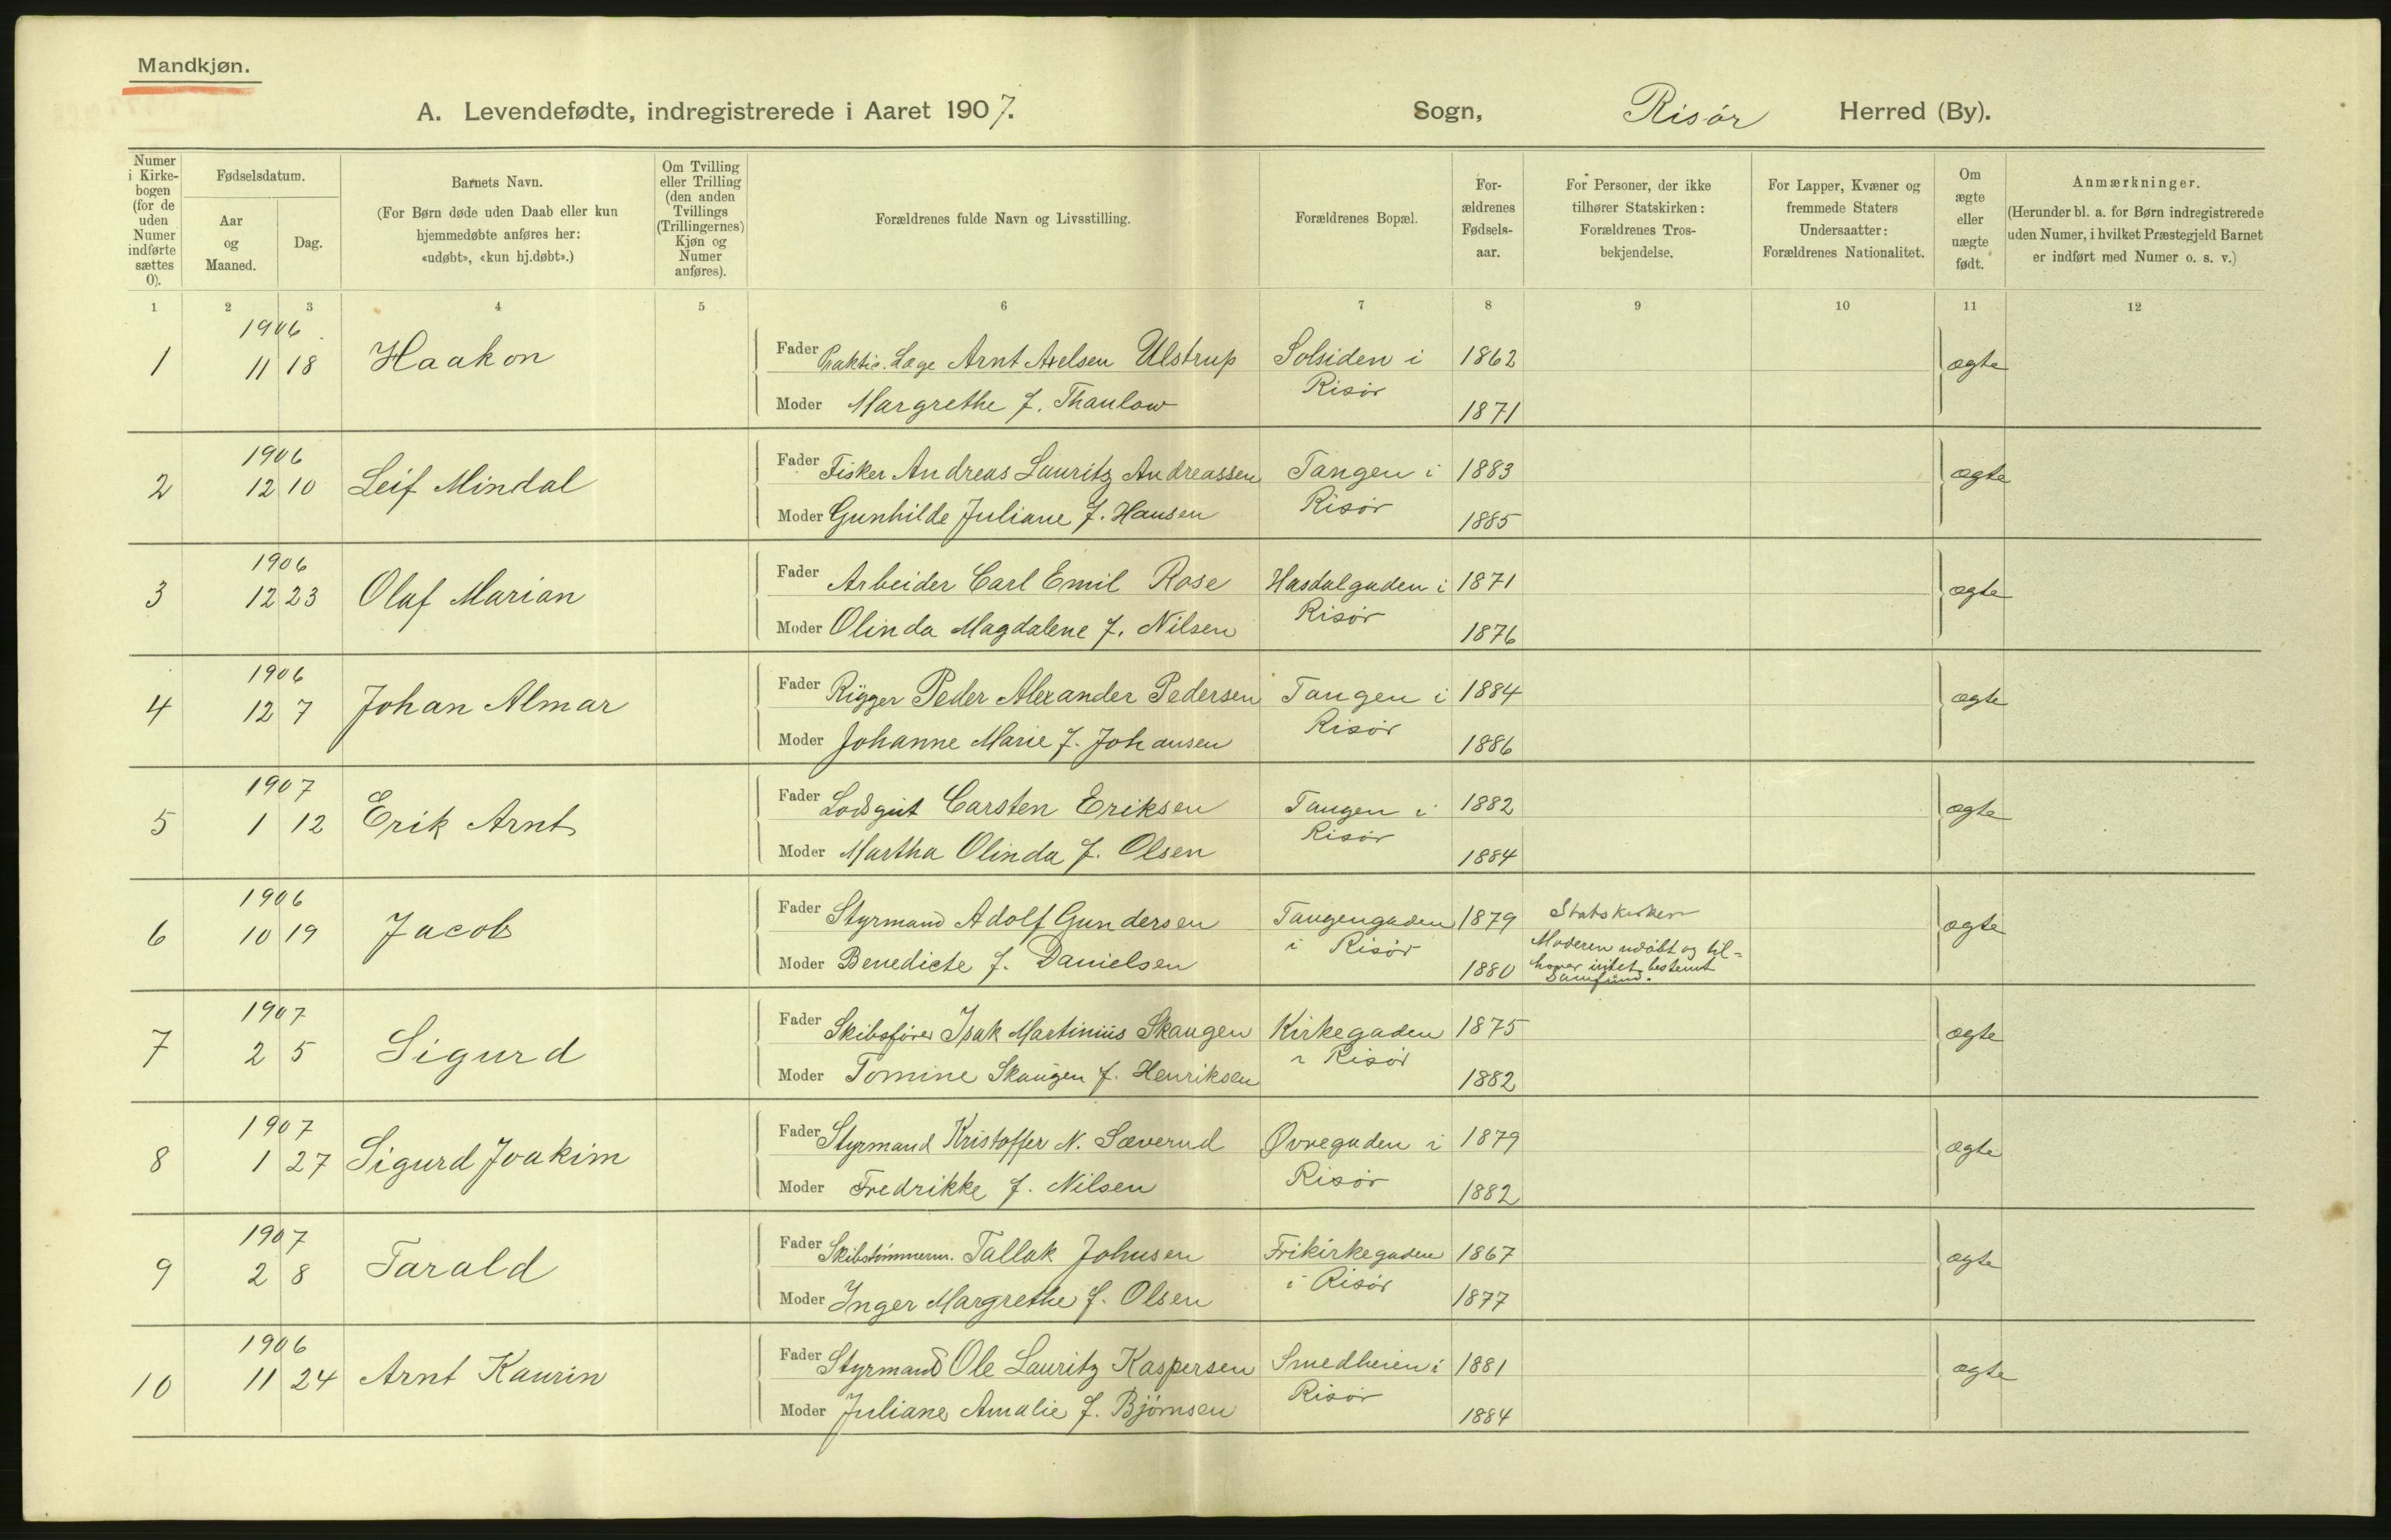 Mandkjøn.
A. Levendefødte, indregistrerede i Aaret 1907. Sogn, Risør Herred (By).
Numer i Kirkebogen (for de uden Numer indførte sættes 0).
Fødselsdatum.
Aar og Maaned.
Dag.
Barnets Navn.
(For Børn døde uden Daab eller kun hjemmedøbte anføres her: «udøbt», «kun hj.døbt».)
Om Tvilling eller Trilling (den anden Tvillings (Trillingernes) Kjøn og Numer anføres).
Forældrenes fulde Navn og Livsstilling.
Forældrenes Bopæl.
For-ældrenes Fødsels-aar.
For Personer, der ikke tilhører Statskirken: Forældrenes Tros-bekjendelse.
For Lapper, Kvæner og fremmede Staters Undersaatter: Forældrenes Nationalitet.
Om ægte eller uægte født.
Anmærkninger.
(Herunder bl. a. for Børn indregistrerede uden Numer, i hvilket Præstegjeld Barnet er indført med Numer o. s. v.)
1 2 3 4 5 6 7 8 9 10 11 12
1906
1 11 18 Haakon Fader Praktis. Læge Arnt Axelsen Ulstrup Solsiden i 1862 ægte
Risør
Moder Margrethe f. Thaulow 1871
1906
2 12 10 Leif Mindal Fader Fisker Andreas Lauritz Andreassen Tangen i 1883 ægte
Risør
Moder Gunhilde Juliane f. Hansen 1885
1906
3 12 23 Olaf Marian Fader Arbeider Carl Emil Rose Hasdalgaden i 1871 ægte
Risør
Moder Olinda Magdalene f. Nilsen 1876
1906
4 12 7 Johan Almar Fader Rigger Peder Alexander Pedersen Tangen i 1884 ægte
Risør
Moder Johanne Marie f. Johansen 1886
1907
5 1 12 Erik Arnt Fader Lodsgut Carsten Eriksen Tangen i 1882 ægte
Risør
Moder Martha Olinda f. Olsen 1884
1906
6 10 19 Jacob Fader Styrmand Adolf Gundersen Tangengaden 1879 Statskirken ægte
i Risør Moderen udøbt og til=
Moder Benedicte f. Danielsen 1880 hører intet bestemt
Samfund.
1907
7 2 5 Sigurd Fader Skibsfører Isak Martinius Skaugen Kirkegaden 1875 ægte
i Risør
Moder Tomine Skaugen f. Henriksen 1882
1907
8 1 27 Sigurd Joakim Fader Styrmand Kristoffer N. Sæverud Øvregaden i 1879 ægte
Risør
Moder Fredrikke f. Nilsen 1882
1907
9 2 8 Tarald Fader Skibstømmerm. Tallak Johnsen Frikirkegaden 1867 ægte
i Risør
Moder Inger Margrethe f. Olsen 1877
1906
10 11 24 Arnt Kaurin Fader Styrmand Ole Lauritz Kaspersen Smedheien i 1881 ægte
Risør
Moder Juliane Amalie f. Bjørnsen 1884